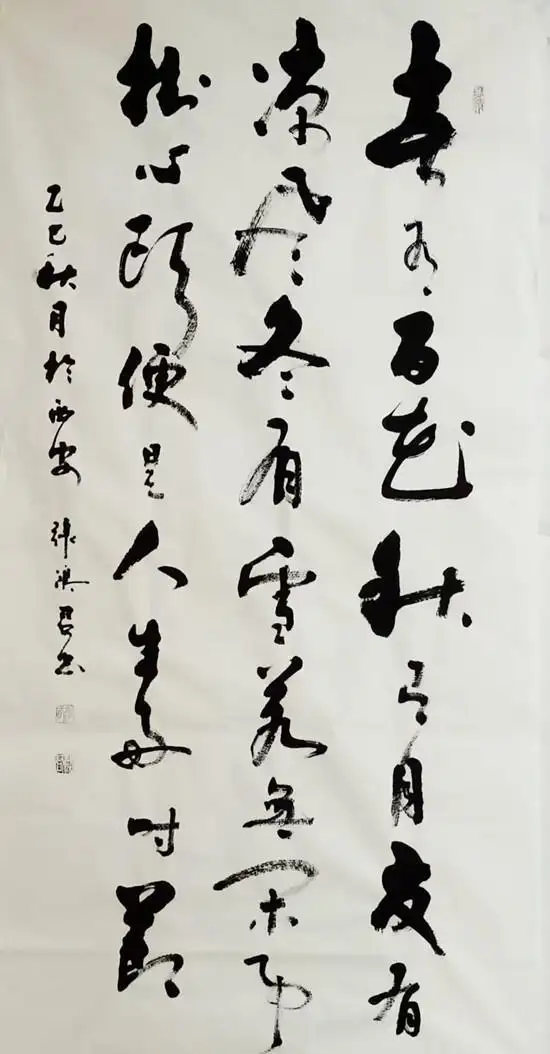 春有百花秋有月夏有
凉风冬有雪若无闲事
掛心头便是人生好时節
乙巳秋月於西安 张君书